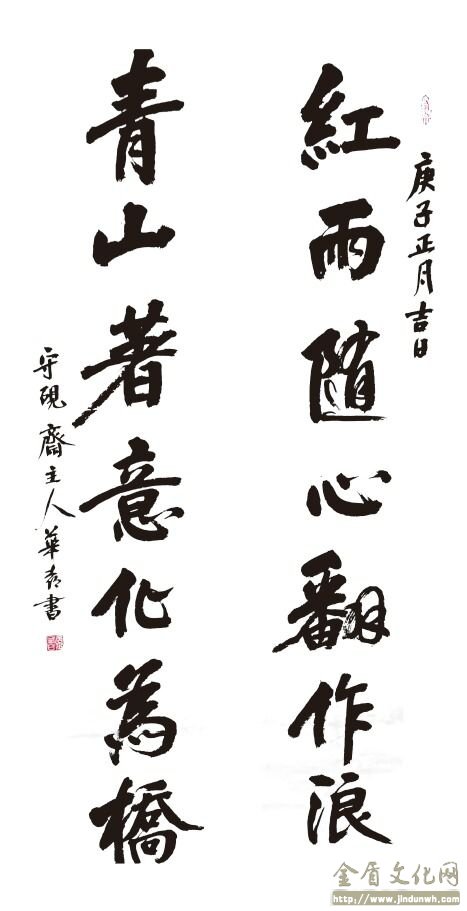 庚子正月吉日
紅雨随心翻作浪
青山著意化為橋
守硯齋主人華青書
金盾文化网
http://www.jindunwh.com